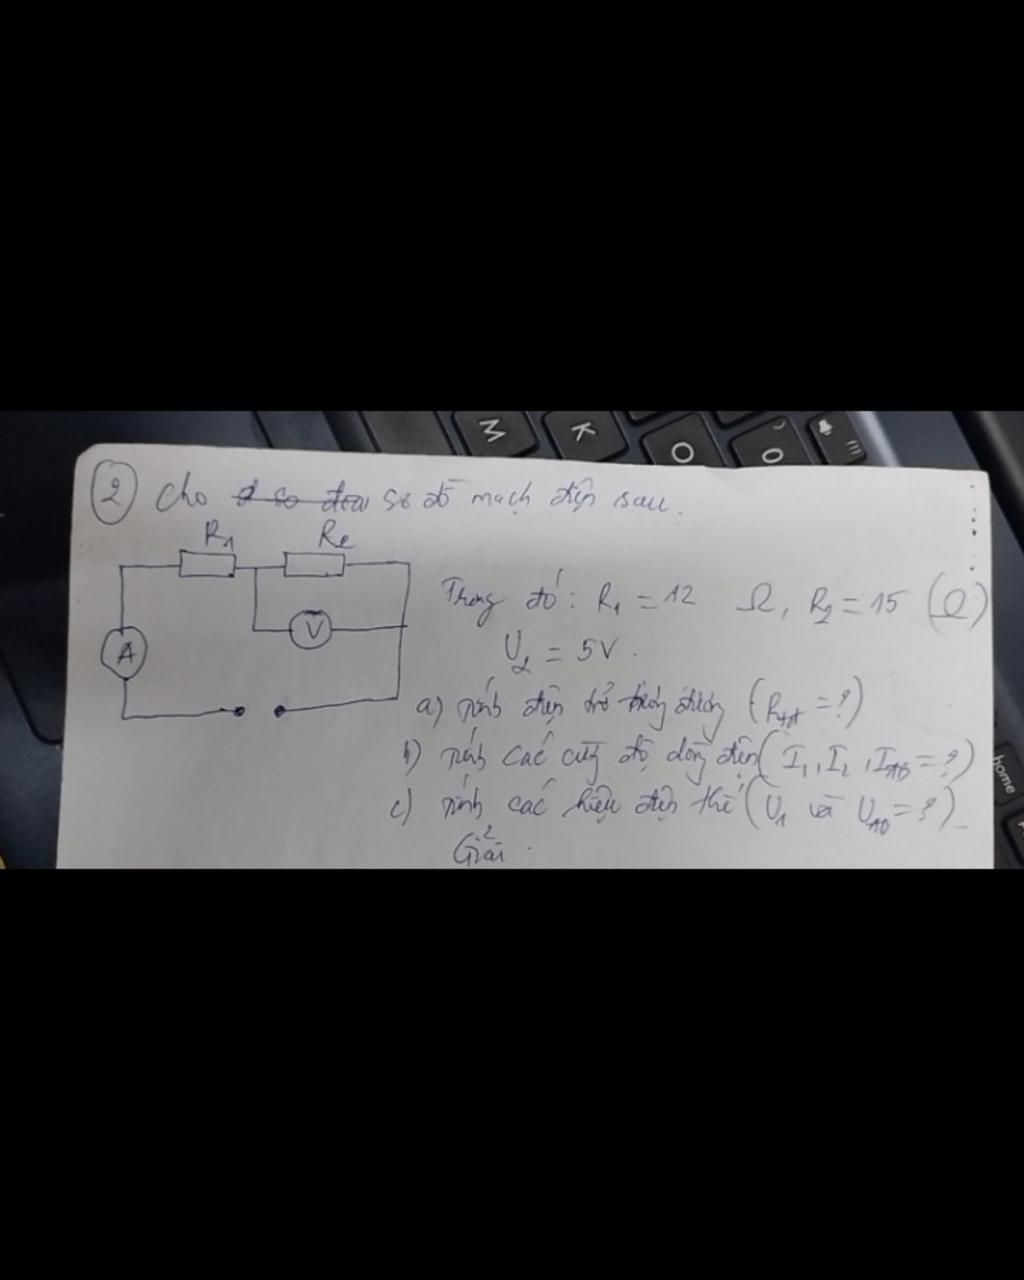 M K O O
home
② Cho sơ đồ mạch điện sau.
R1 R2
V
A
Trong đó: R1 = 12 Ω, R2 = 15 (Ω)
U2 = 5V.
a) Tính điện trở tương đương (Rtđ = ?)
b) Tính các cường độ dòng điện (I1, I2, IAB = ?)
c) Tính các hiệu điện thế (U1 và UAB = ?)
Giải.